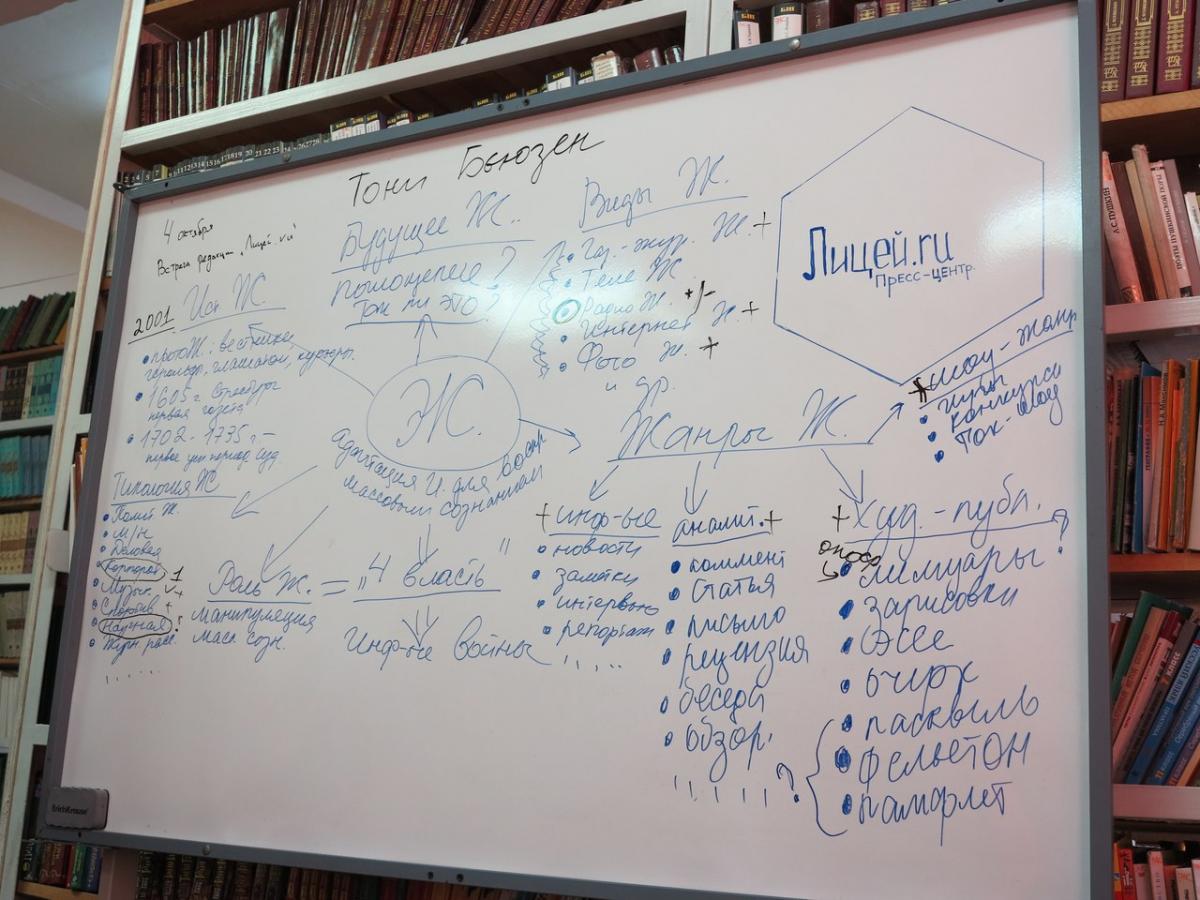 Тони Бьюзен
4 октября
Встреча редакции "Лицей.ru"
2001
Ист Ж.
• прото Ж.: вестники,
герольды, глашатаи, курьеры.
• 1605 г. Страсбург
первая газета
• 1702 - 1735 г. –
первое период. суд.
Типология Ж
• Полит Ж.
• м/н
• Деловая
• Корпорат 1
• Музык. +
• Спортив +
• Научная
• Журн расс.
.....
Будущее Ж..
поглощение?
Так ли это?
Ж.
Адаптация И. для воспр.
массовым сознанием
Роль Ж. = "4 власть"
манипуляция
масс созн.
Инф-ые войны
Виды Ж.
• Газ.-жур. Ж. +
• Теле Ж
• Радио Ж. +/-
• Интернет Ж. +
• Фото Ж. +
и др.
Лицей.ru
Пресс-центр.
Жанры Ж.
шоу-жанр
• игры
• конкурсы
• Ток-шоу
+ инф-ые
• новости
• заметки
• интервью
• репортаж
.....
аналит. +
• коммент
• статья
• письмо
• рецензия
• беседа
• обзор.
, , , , , ?
+ худ.-публ.
опоср
• мемуары?
• зарисовки
• Эссе
• очерк
• пасквиль
• фельетон
• памфлет
ErichKrause
А.С.ПУШКИН